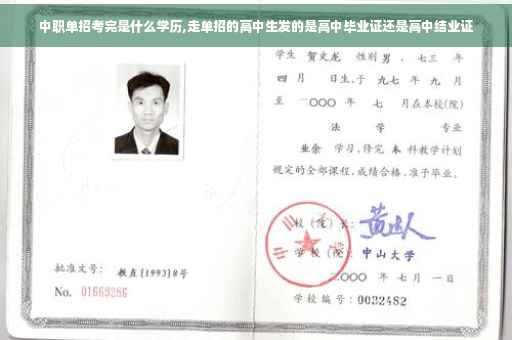 中职单招考完是什么学历,走单招的高中生发的是高中毕业证还是高中结业证
学生 贺文龙 性别 男 、七三 年
四 月 日生,于 九七 年 九 月
至 二〇〇〇 年 七 月在本校(院)
法 学 专业
业余 学习,修完 本 科教学计划
规定的全部课程,成绩合格,准予毕业。
校 (院) 长:
学 校 (院): 中山大学
二〇〇〇 年 七 月 一 日
学校编号: 0032482
批准文号: 教直[1993]8号
No. 01669286